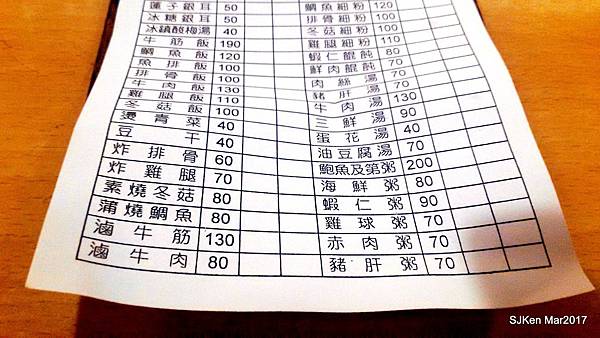 蓮子銀耳 50
冰糖銀耳 50
冰鎮酸梅湯 40
牛筋飯 190
鯛魚飯 120
魚排飯 100
排骨飯 100
牛肉飯 130
雞腿飯 110
冬菇飯 100
燙青菜 40
豆干 40
炸排骨 60
炸雞腿 70
素燒冬菇 80
蒲燒鯛魚 80
滷牛筋 130
滷牛肉 80
鯛魚細粉 120
排骨細粉 100
冬菇細粉 100
雞腿細粉 110
蝦仁餛飩 80
鮮肉餛飩 70
肉絲湯 70
豬肝湯 70
牛肉湯 130
三鮮湯 90
蛋花湯 40
油豆腐湯 70
鮑魚及第粥 200
海鮮粥 80
蝦仁粥 90
雞球粥 70
赤肉粥 70
豬肝粥 70
SJKen Mar2017